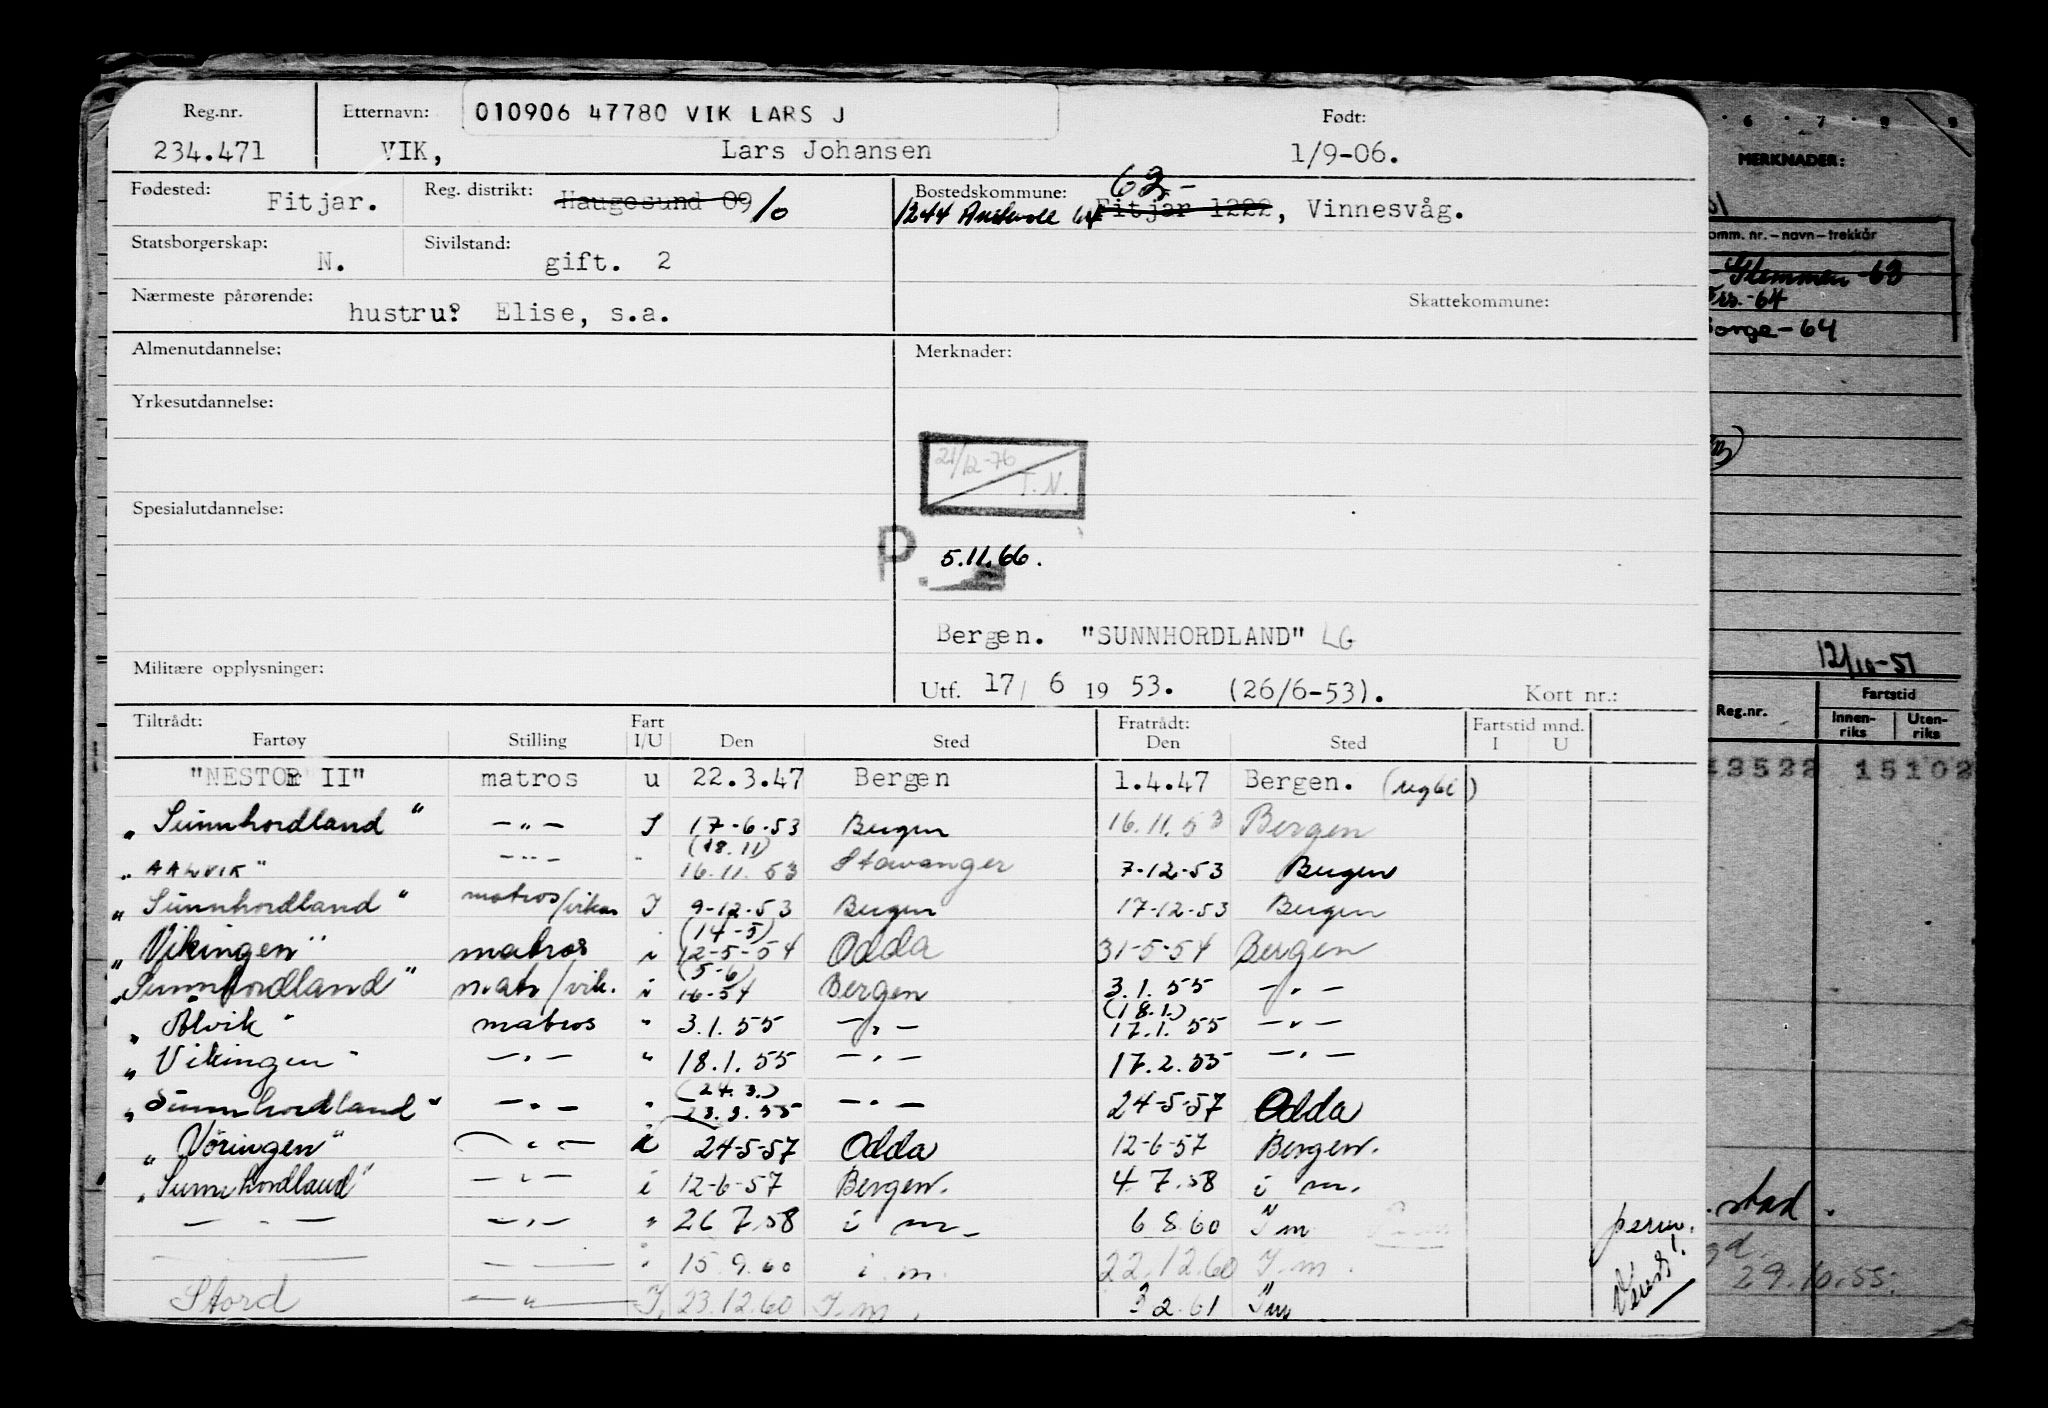 Reg.nr. Etternavn: 010906 47780 VIK LARS J Født:
234.471 VIK, Lars Johansen 1/9-06.
Fødested: Fitjar. Reg. distrikt: Haugesund 09 10 Bostedskommune: 63-
1244 Austevoll 64 Fitjar 1222, Vinnesvåg.
Statsborgerskap: N. Sivilstand: gift. 2
Nærmeste pårørende: hustru: Elise, s.a. Skattekommune:
Almenutdannelse: Merknader:
Yrkesutdannelse:
21/12-76
T.N.
Spesialutdannelse:
P. 5.11.66.
Bergen. "SUNNHORDLAND" LG
Militære opplysninger:
Utf. 17/ 6 19 53. (26/6-53). Kort nr.:
Tiltrådt: Fart Fratrådt: Fartstid mnd.
Fartøy Stilling I/U Den Sted Den Sted I U
"NESTOR II" matros u 22.3.47 Bergen 1.4.47 Bergen.
"Sunnhordland" -"- I 17-6-53 Bergen 16.11.53 Bergen
(18.11)
"AALVIK" -"- " 16.11.53 Stavanger 7-12-53 Bergen
"Sunnhordland" matros/vikar I 9-12-53 Bergen 17-12-53 Bergen
(14-5)
"Vikingen" matros i 12-5-54 Odda 31-5-54 Bergen
(5-6)
"Sunnhordland" matr/vik. i 1-6-54 Bergen 3.1.55 -"-
(18.1.)
"Ålvik" matros " 3.1.55 -"- 17.1.55 -"-
"Vikingen" -"- " 18.1.55 -"- 17.2.55 -"-
(24.3.)
"Sunnhordland" -"- " 23.3.55 -"- 24-5-57 Odda
"Vöringen" -"- i 24-5-57 Odda 12-6-57 Bergen.
"Sunnhordland" -"- i 12-6-57 Bergen. 4.7.58 i m.
-"- -"- " 26.7.58 i m. 6.8.60 I m perm.
15.9.60 i m. 22.12.60 I m.
Stord -"- I 23.12.60 I m. 3.2.61 I m
6 7 8 9
MERKNADER:
omm. nr. – navn – trekkår
Stemmen -63
-64
Borge - 64
12/10-51
Fartstid
Reg.nr. Innen-riks Uten-riks
43522 15102
stad.
29.10.55.